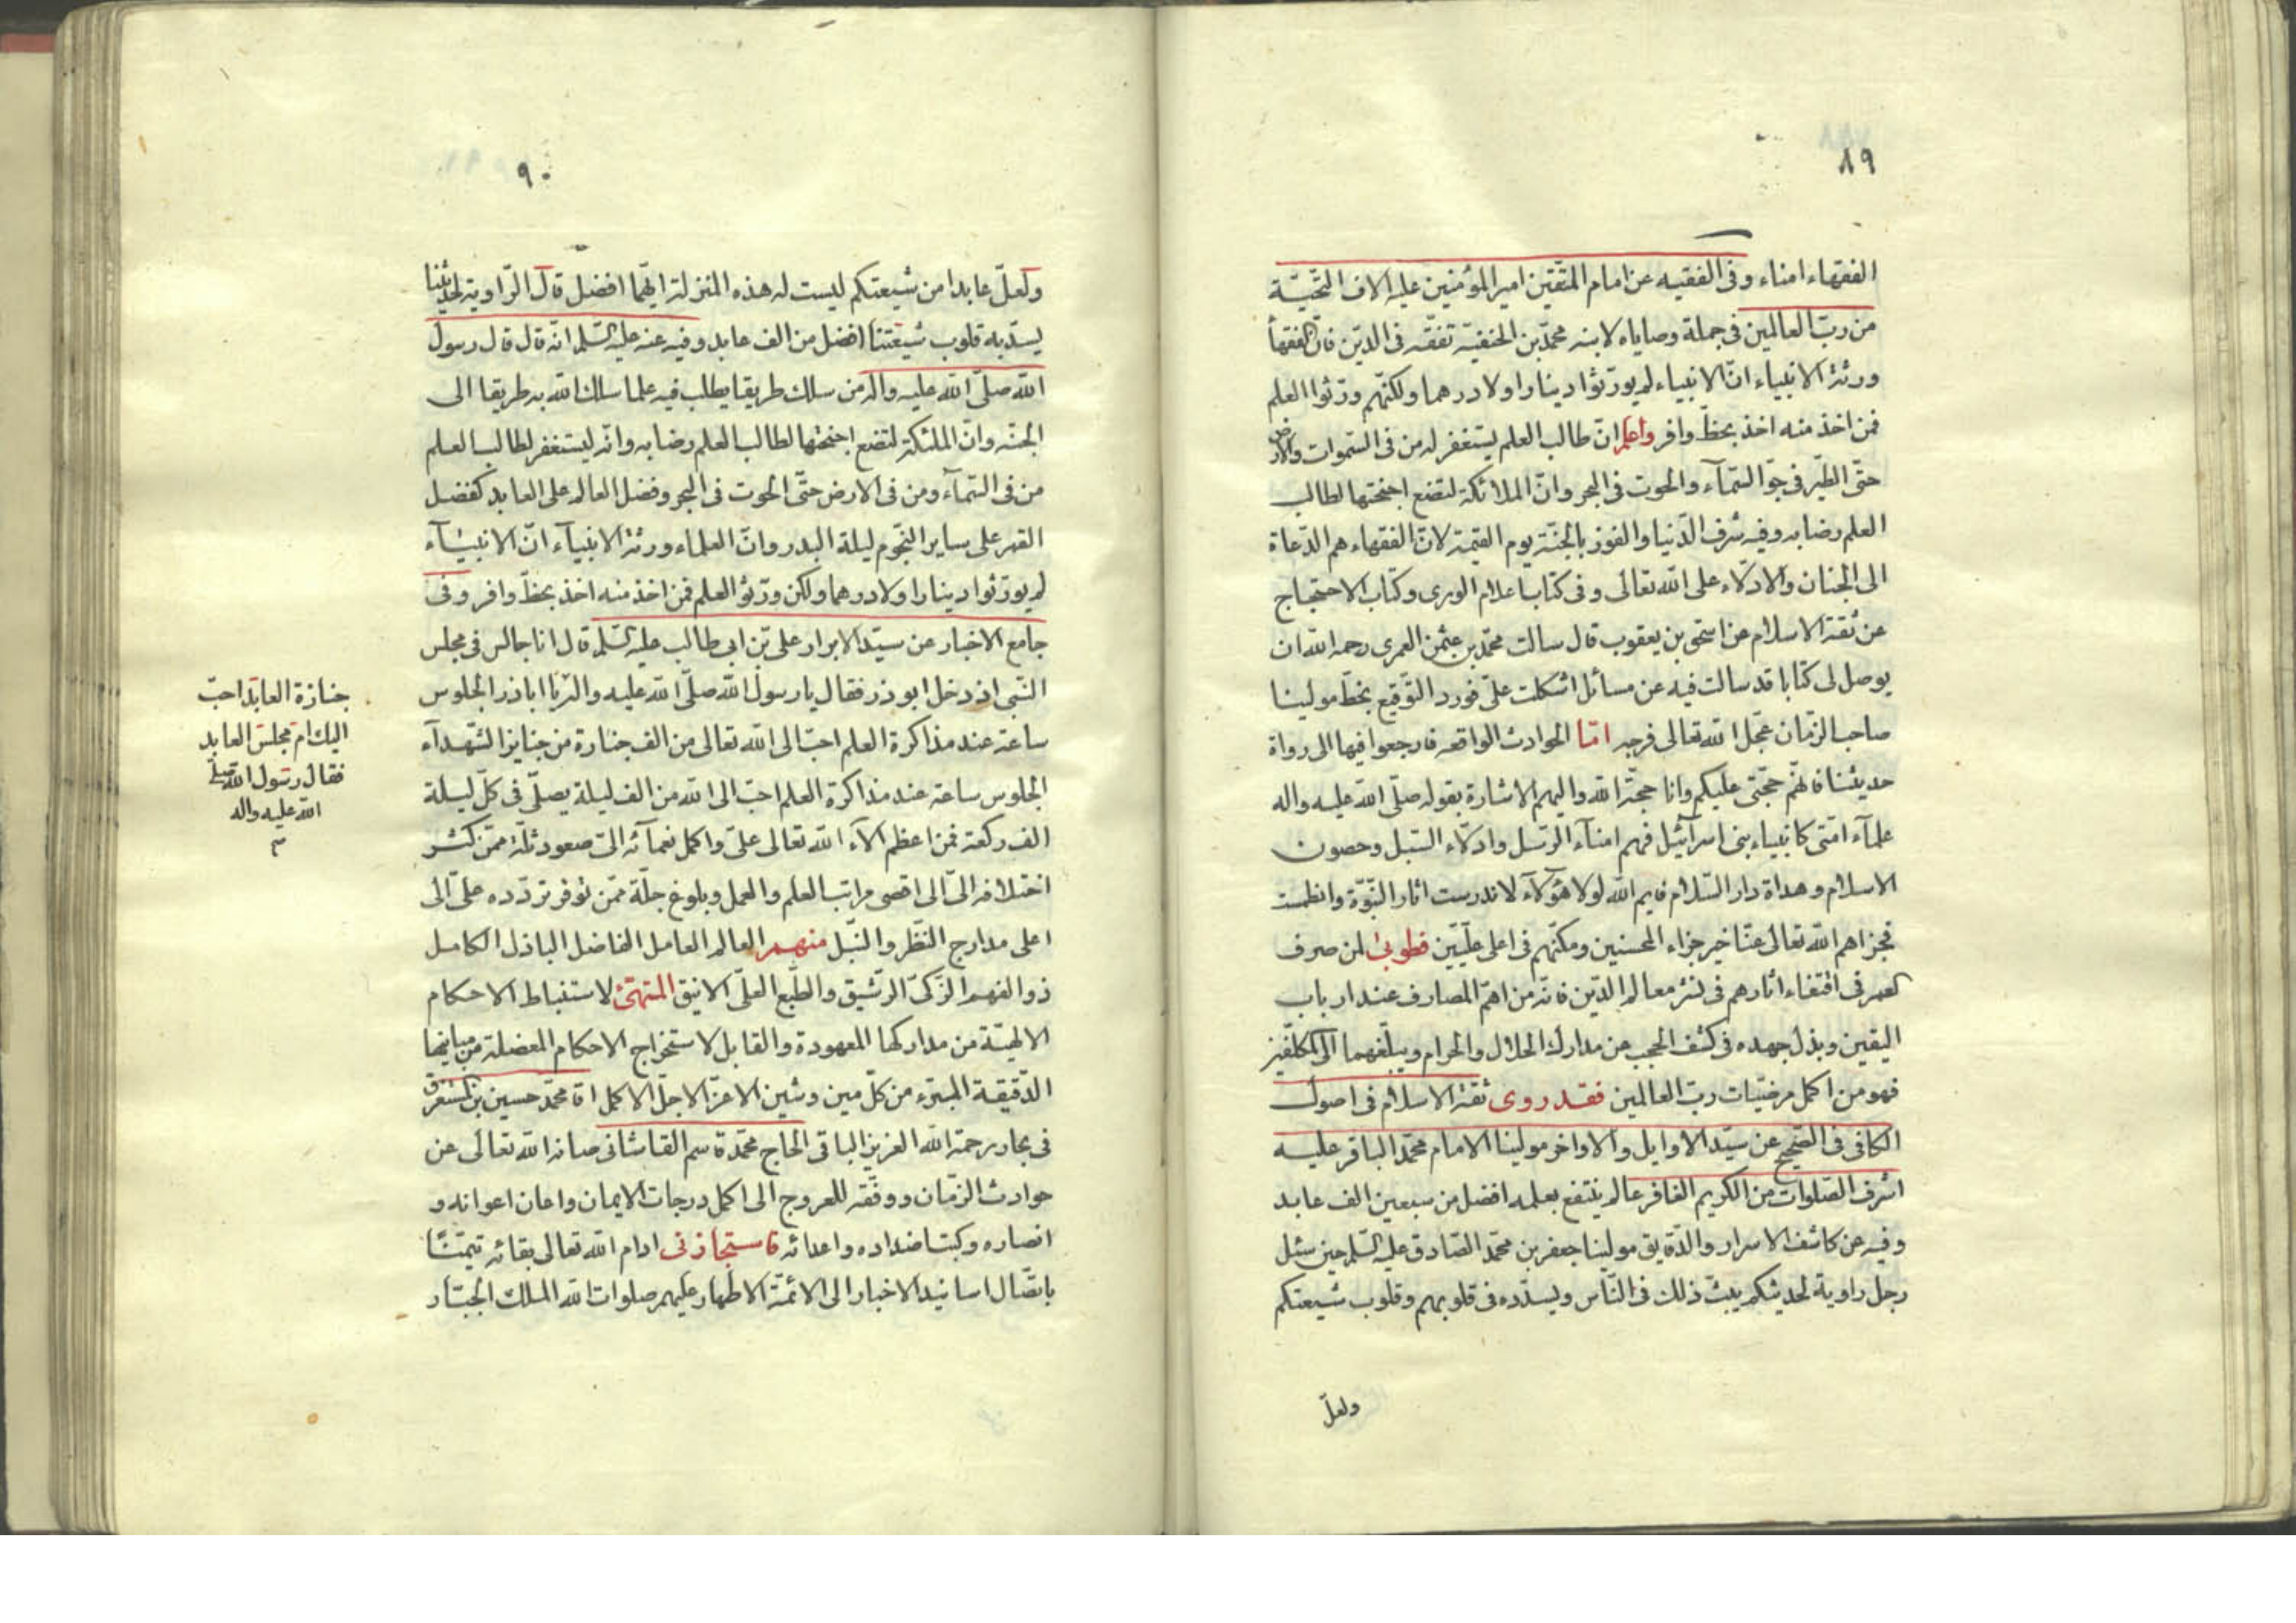 ٨٩
الفقهاء امناء وفى الفقيه عن امام المتقين امير المؤمنين عليه الاف التحيّة
من ربّ العالمين فى جملة وصاياه لابنه محمّد بن الحنفيّة تفقّه فى الدّين فانّ الفقهاء
ورثة الانبياء انّ الانبياء لم يورّثوا دينارا ولا درهما ولكنّهم ورّثوا العلم
فمن اخذ منه اخذ بحظّ وافر واعلم انّ طالب العلم يستغفر له من فى السّموات والارض
حتّى الطّير فى جوّ السّمآء والحوت فى البحر وانّ الملائكة لتضع اجنحتها لطالب
العلم رضا به وفيه شرف الدّنيا والفوز بالجنّة يوم القيمة لانّ الفقهاء هم الدّعاة
الى الجنان والادلّاء على الله تعالى وفى كتاب اعلام الورى وكتاب الاحتجاج
عن ثقة الاسلام عن اسحق بن يعقوب قال سالت محمّد بن عثمن العمرى رحمه الله ان
يوصل لى كتابا قد سالت فيه عن مسائل اشكلت علىّ فورد التّوقيع بخطّ مولينا
صاحب الزّمان عجّل الله تعالى فرجه امّا الحوادث الواقعه فارجعوا فيها الى رواة
حديثنا فانّهم حجّتى عليكم وانا حجّة الله واليهم الاشارة بقوله صلّى الله عليه واله
علمآء امّتى كانبياء بنى اسرآئيل فهم امنآء الرّسل وادلّاء السّبل وحصون
الاسلام وهداة دار السّلام فايم الله لولا هؤلآء لاندرست اثار النّبوّة وانطمست
فجزاهم الله تعالى عنّا خير جزاء المحسنين ومكنّهم فى اعلى علّيّين فطوبى لمن صرف
العمر فى اقتفاء اثارهم فى نشر معالم الدّين فانّه من اهمّ المصارف عند ارباب
اليقين وبذل جهده فى كشف الحجب عن مدارك الحلال والحرام ويبلّغهما الى المكلّفين
فهو من اكمل مرضيّات ربّ العالمين فقد روى ثقة الاسلام فى اصول
الكافى فى الصّحيح عن سيّد الاوايل والاواخر مولينا الامام محمّد الباقر عليه
اشرف الصّلوات من الكريم الغافر عالم ينتفع بعلمه افضل من سبعين الف عابد
وفيه عن كاشف الاسرار والدّقايق مولينا جعفر بن محمّد الصّادق عليه السّلم حين سئل
رجل راوية لحديثكم يبثّ ذلك فى النّاس ويسدّده فى قلوبهم وقلوب شيعتكم
ولعلّ
٩٠
ولعلّ عابدا من شيعتكم ليست له هذه المنزلة ايّهما افضل قال الرّاوية لحديثنا
يسدّ به قلوب شيعتنا افضل من الف عابد وفيه عنه عليه السّلم انّه قال قال رسول
الله صلّى الله عليه واله من سلك طريقا يطلب فيه علما سلك الله به طريقا الى
الجنّه وانّ الملئكة لتضع اجنحتها لطالب العلم رضا به وانّه ليستغفر لطالب العلم
من فى السّمآء ومن فى الارض حتّى الحوت فى البحر وفضل العالم على العابد كفضل
القمر على ساير النّجوم ليلة البدر وانّ العلماء ورثة الانبيآء انّ الانبيآء
لم يورّثوا دينارا ولا درهما ولكن ورّثوا العلم فمن اخذ منه اخذ بحظّ وافر وفى
جامع الاخبار عن سيّد الابرار علىّ بن ابى طالب عليه السّلم قال انا جالس فى مجلس
النّبى اذ دخل ابو ذر فقال يا رسول الله صلّى الله عليه واله يا اباذر الجلوس
ساعة عند مذاكرة العلم احبّ الى الله تعالى من الف جنازة من جنايز الشّهدآء
الجلوس ساعة عند مذاكرة العلم احبّ الى الله من الف ليلة يصلّى فى كلّ ليلة
الف ركعة فمن اعظم الآء الله تعالى علىّ واكمل نعمآئه الىّ صعود ثلّة ممّن كثر
اختلافه الىّ الى اقصى مراتب العلم والعمل وبلوغ جلّة ممّن توفر تردّده علىّ الى
اعلى مدارج النّظر والنّبل منهم العالم العامل الفاضل الباذل الكامل
ذو الفهم الزّكىّ الرّشيق والطّبع العلىّ الانيق المتهيّئ لاستنباط الاحكام
الالهيّة من مداركها المعهودة والقابل لاستخراج الاحكام المعضلة من مبانيها
الدّقيقة المبرّء من كلّ مين وشين الاعزّ الاجلّ الاكمل اقا محمّد حسين بن المستغرق
فى بحار رحمة الله العزيز الباقى الحاج محمّد قاسم القاشانى صانه الله تعالى عن
حوادث الزّمان ووفّقه للعروج الى اكمل درجات الايمان واعان اعوانه و
انصاره وكبت اضداده واعدائه فاستجازنى ادام الله تعالى بقائه تيمّنًا
باتّصال اسانيد الاخبار الى الائمّة الاطهار عليهم صلوات الله الملك الجبّار
جنازة العابد احبّ
اليك ام مجلس العابد
فقال رسول الله صلّى
الله عليه واله